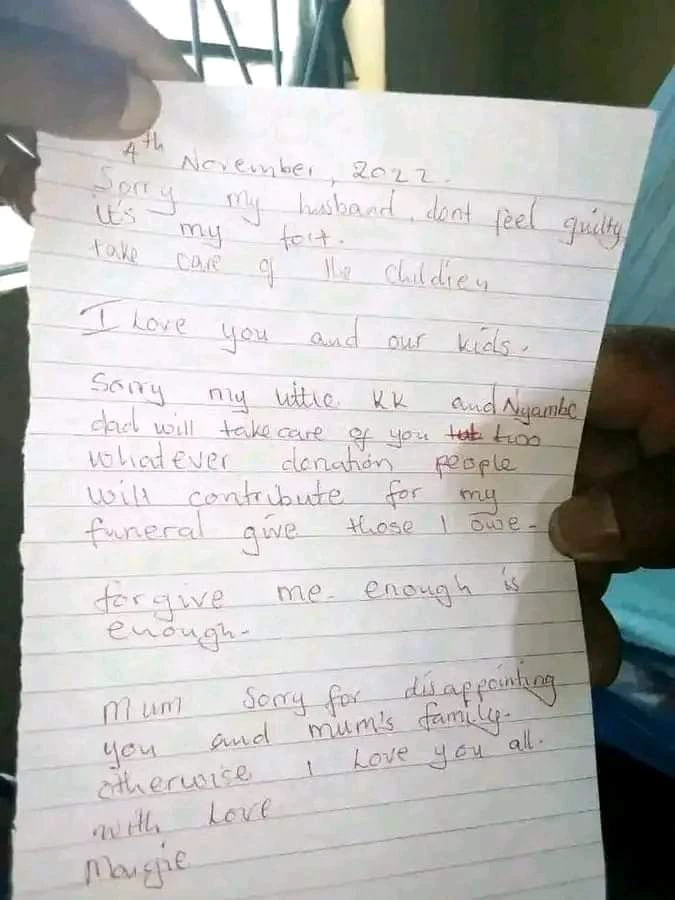 4th November, 2022.
Sorry my husband, dont feel guilty
it's my folt.
take care of the children
I Love you and our kids.
Sorry my little KK and Nyambe
dad will take care of you two
whatever donation people
will contribute for my
funeral give those I owe-
forgive me. enough is
enough-
Mum Sorry for disappointing
you and mum's family.
otherwise I Love you all.
with Love